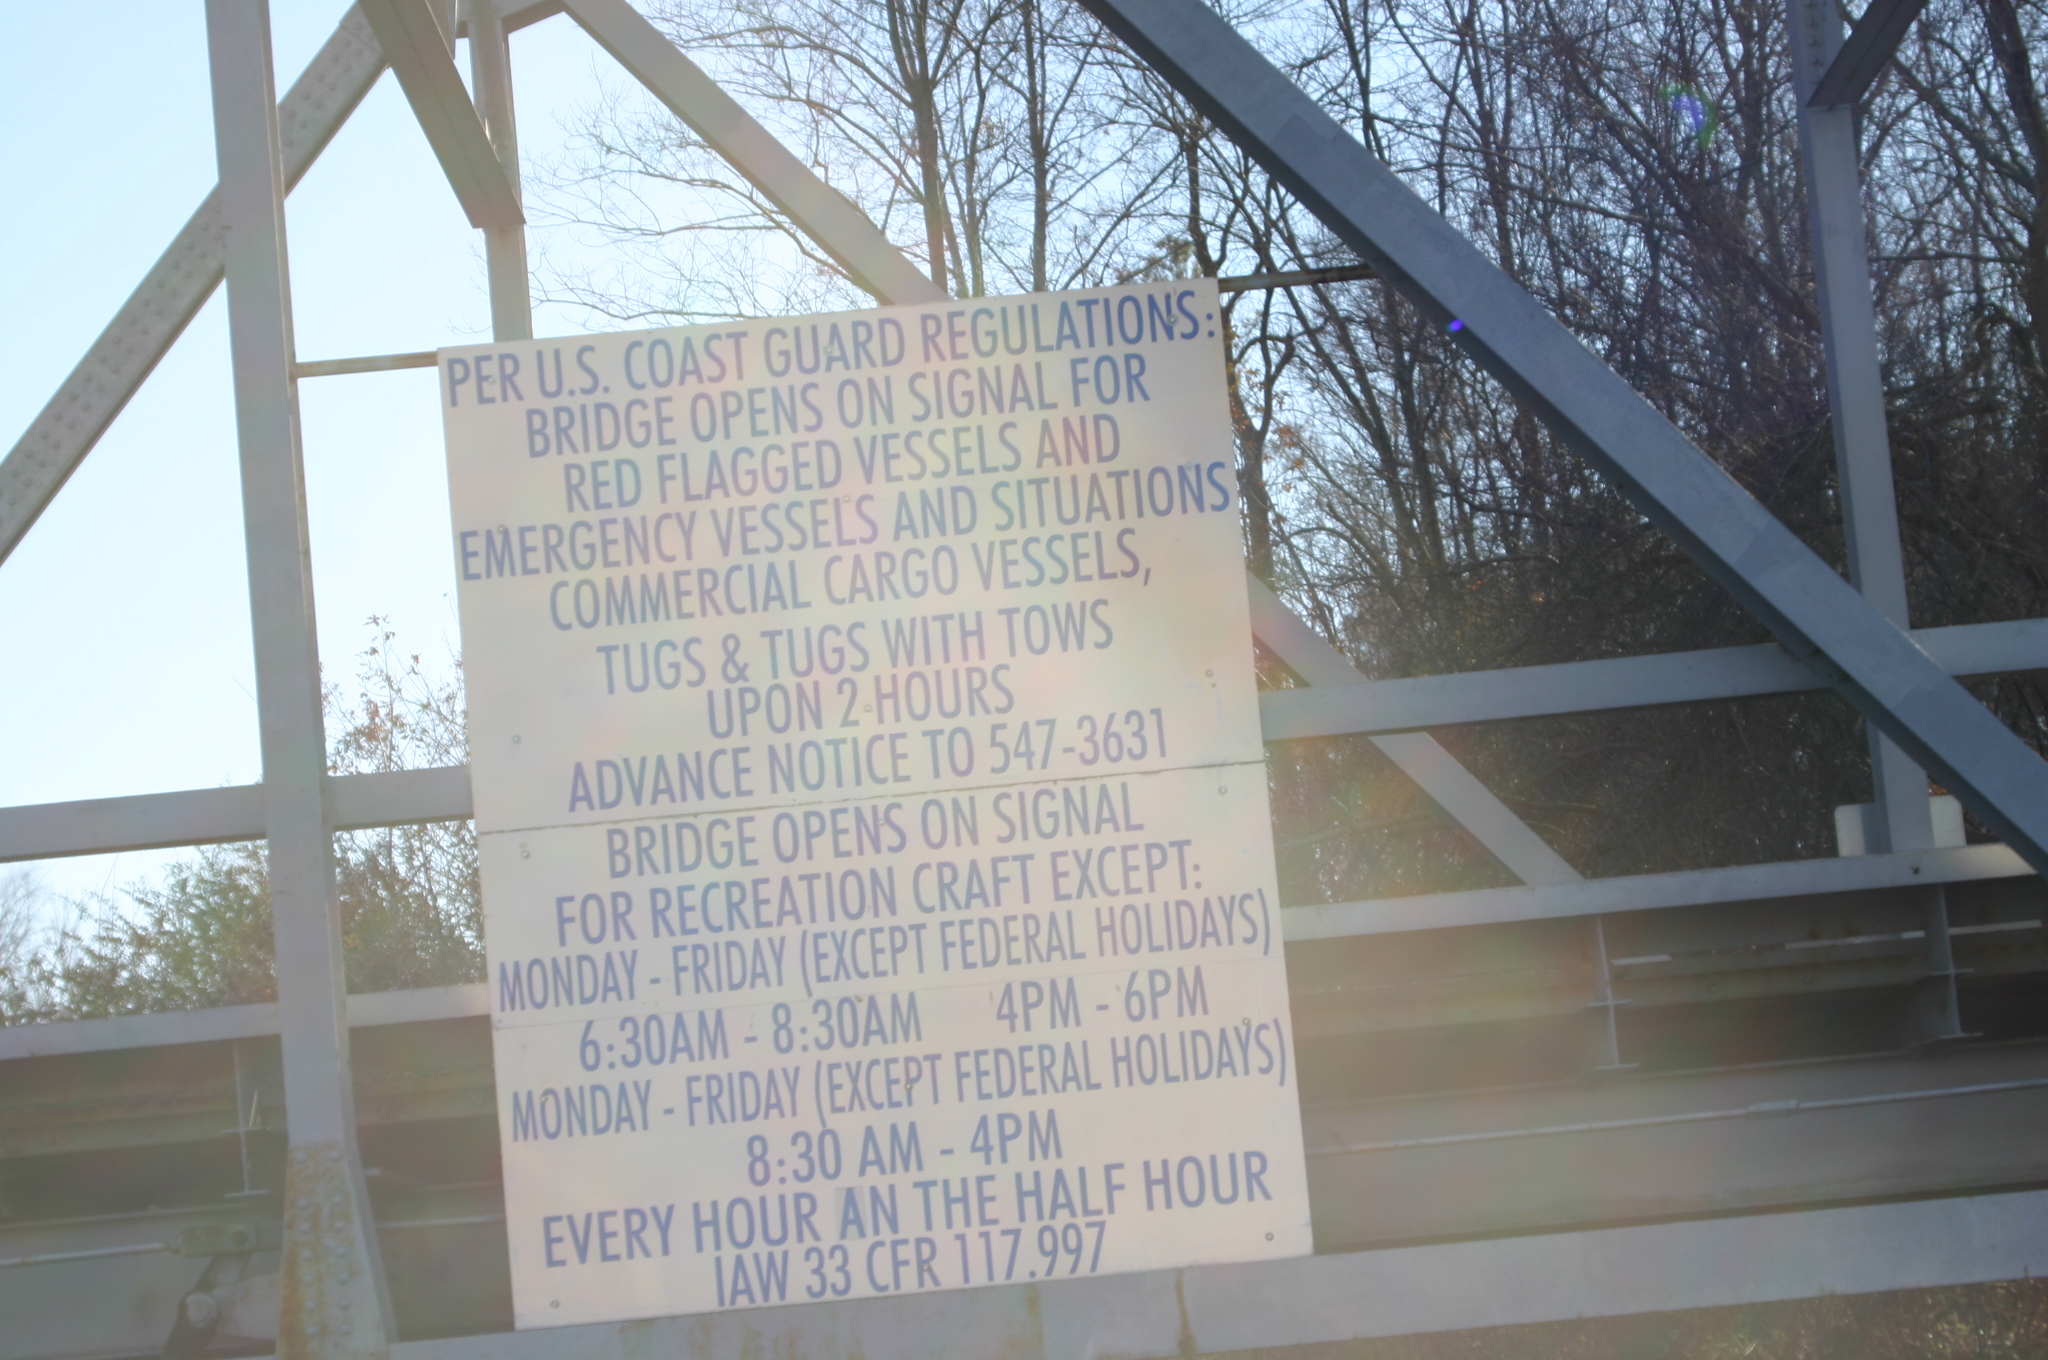 PER U.S. COAST GUARD REGULATIONS:
BRIDGE OPENS ON SIGNAL FOR
RED FLAGGED VESSELS AND
EMERGENCY VESSELS AND SITUATIONS
COMMERCIAL CARGO VESSELS,
TUGS & TUGS WITH TOWS
UPON 2 HOURS
ADVANCE NOTICE TO 547-3631
BRIDGE OPENS ON SIGNAL
FOR RECREATION CRAFT EXCEPT:
MONDAY - FRIDAY (EXCEPT FEDERAL HOLIDAYS)
6:30AM - 8:30AM 4PM - 6PM
MONDAY - FRIDAY (EXCEPT FEDERAL HOLIDAYS)
8:30 AM - 4PM
EVERY HOUR AN THE HALF HOUR
IAW 33 CFR 117.997